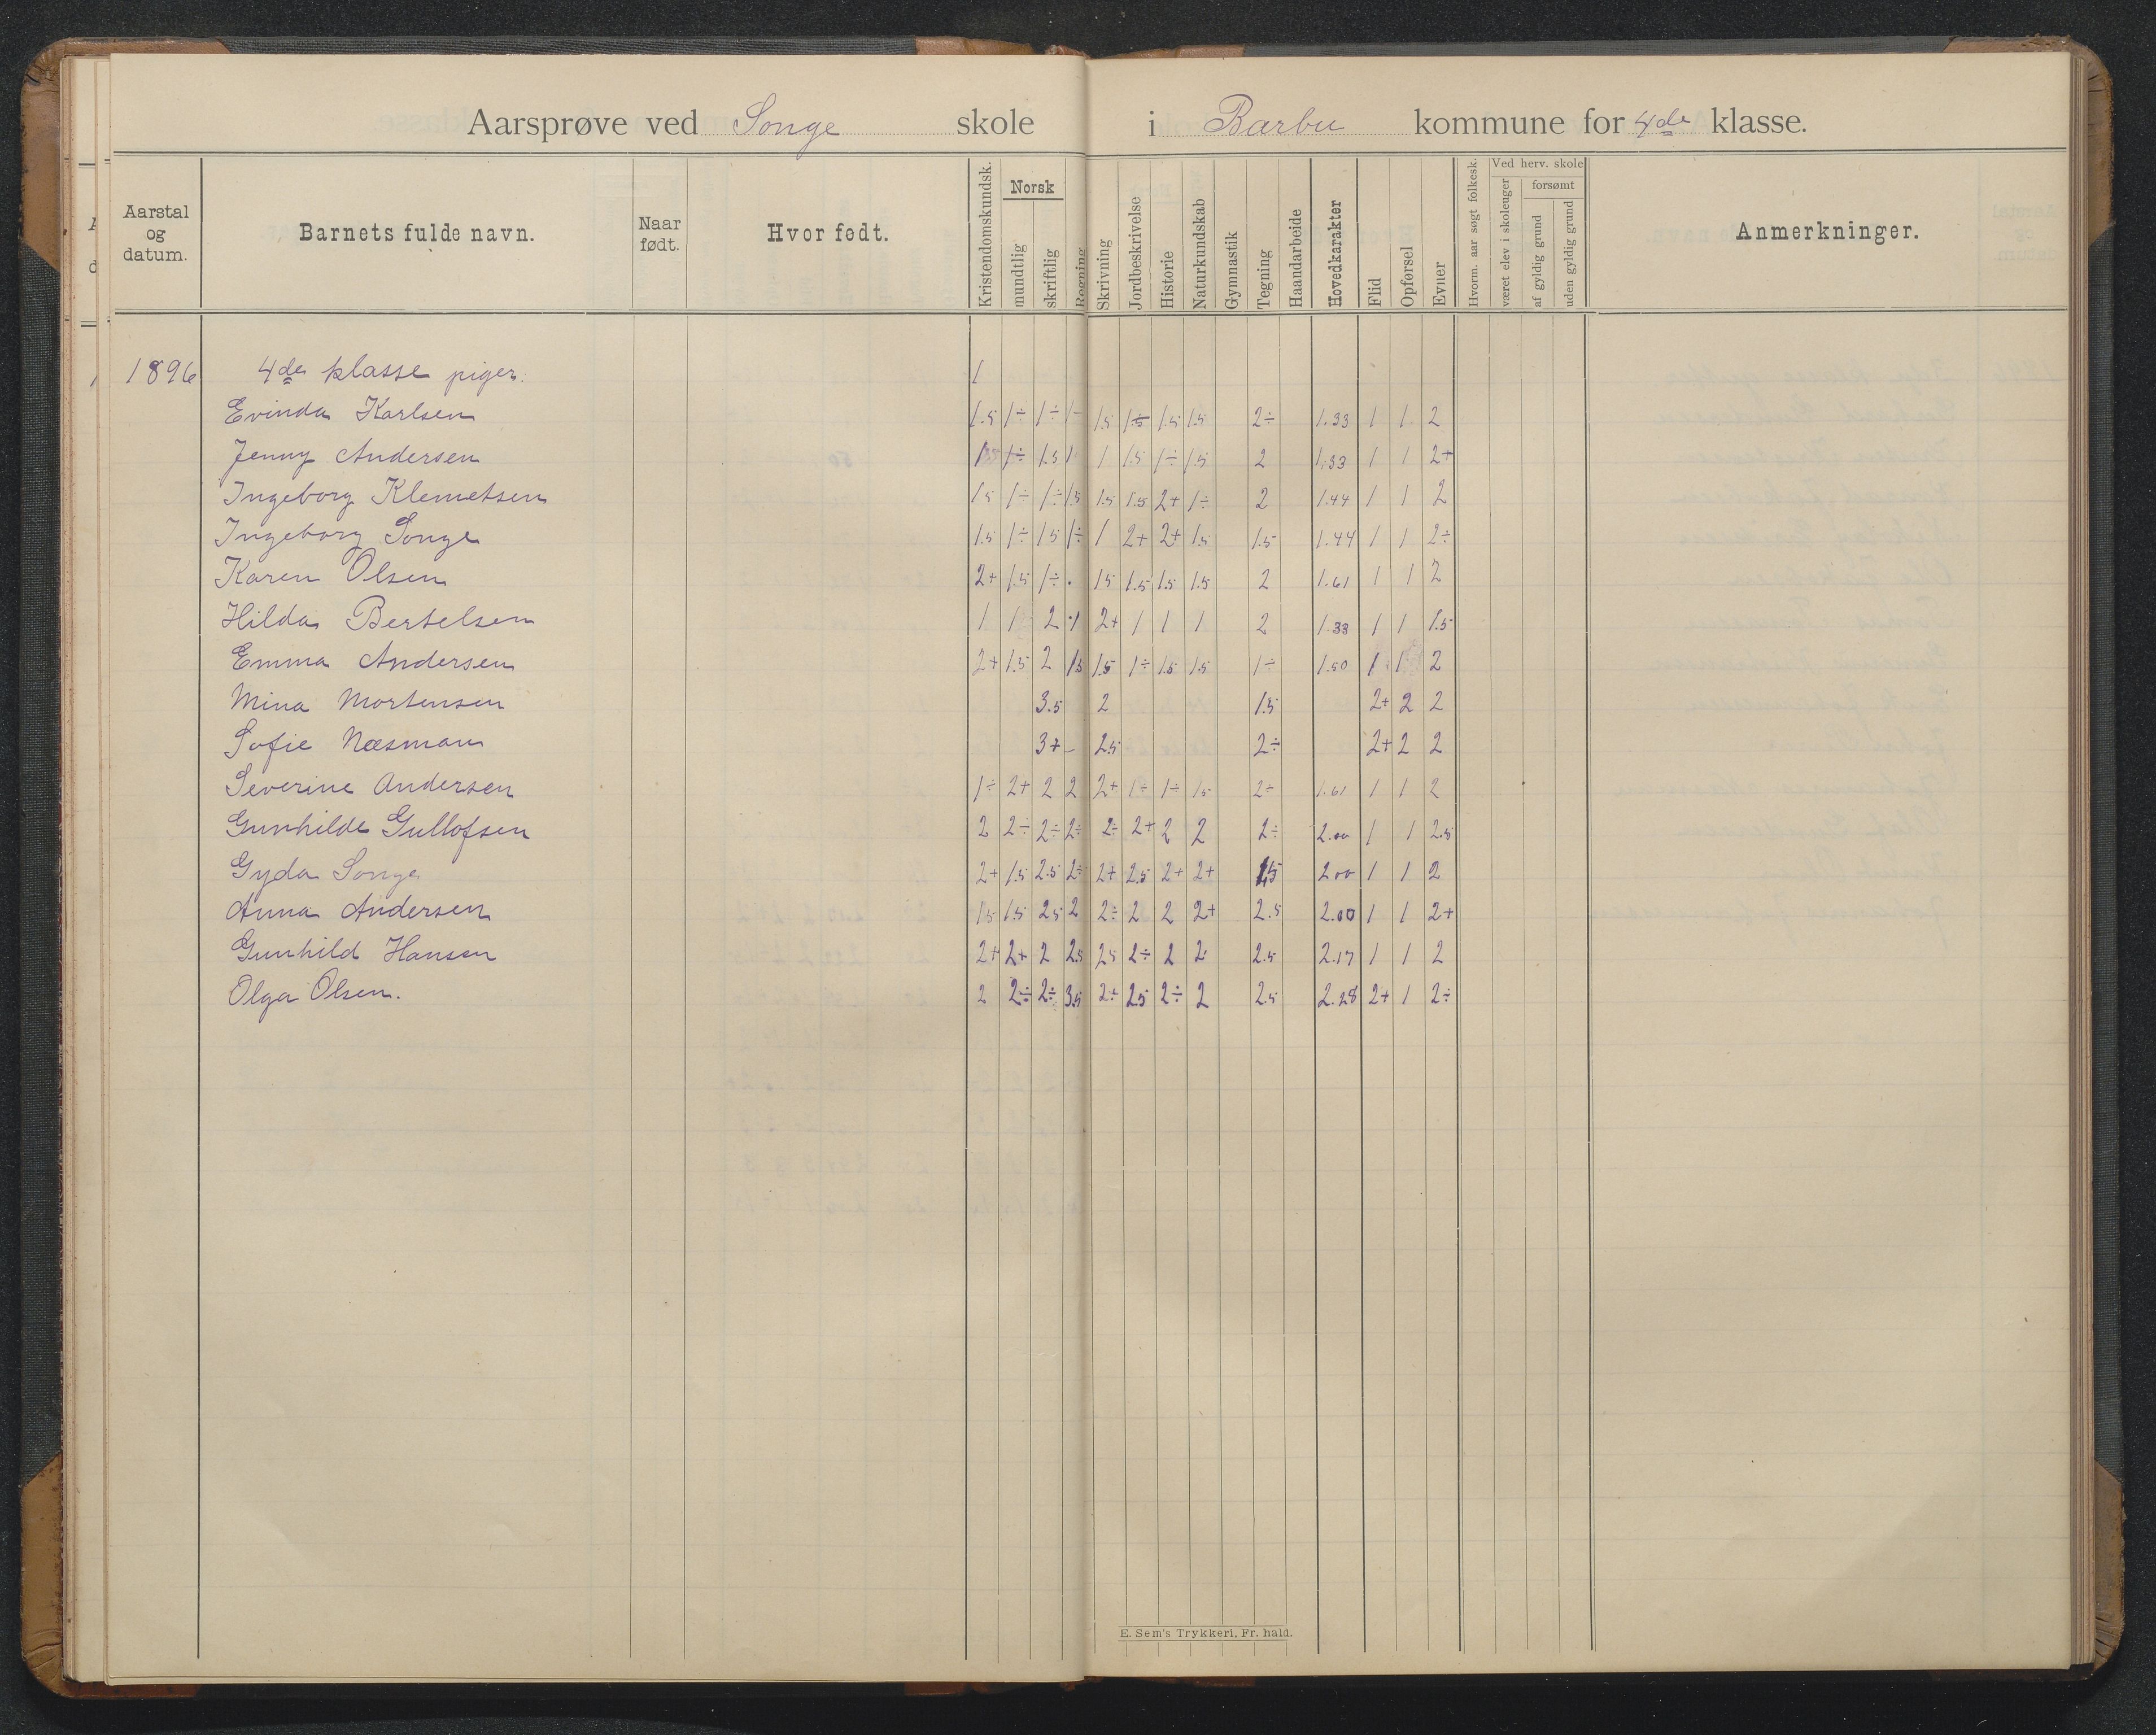 Aarsprøve ved Songe skole i Barbu kommune for 4de klasse.
Aarstal og datum. Barnets fulde navn. Naar født. Hvor født. Kristendomskundsk. Norsk mundtlig skriftlig Regning Skrivning Jordbeskrivelse Historie Naturkundskab Gymnastik Tegning Haandarbeide Hovedkarakter Flid Opførsel Evner Hvorm. aar søgt folkesk. Ved herv. skole været elev i skoleuger forsømt af gyldig grund uden gyldig grund Anmerkninger.
1896 4de klasse piger. 1
Evinda Karlsen 1.5 1÷ 1÷ 1÷ 1.5 1÷ 1.5 1.5 2÷ 1.33 1 1 2
Jenny Andersen 1 1÷ 1.5 1 1 1.5 1÷ 1.5 2 1.33 1 1 2+
Ingeborg Klemetsen 1.5 1÷ 1÷ 1.5 1.5 1.5 2+ 1÷ 2 1.44 1 1 2
Ingeborg Songe 1.5 1÷ 1.5 1÷ 1 2+ 2+ 1.5 1.5 1.44 1 1 2÷
Karen Olsen 2+ 1.5 1÷ 1.5 1.5 1.5 1.5 2 1.61 1 1 2
Hilda Bertelsen 1 1 2 1 2+ 1 1 1 2 1.33 1 1 1.5
Emma Andersen 2+ 1.5 2 1.5 1.5 1÷ 1.5 1.5 1÷ 1.50 1 1 2
Mina Mortensen 3.5 2 1.5 2+ 2 2
Sofie Næsman 3+ – 2.5 2÷ 2+ 2 2
Severine Andersen 1÷ 2+ 2 2 2+ 1÷ 1÷ 1.5 2÷ 1.61 1 1 2
Gunhilde Gullofsen 2 2÷ 2÷ 2÷ 2÷ 2+ 2 2 2÷ 2.00 1 1 2.5
Gyda Songe 2+ 1.5 2.5 2÷ 2+ 2.5 2+ 2+ 1.5 2.00 1 1 2
Anna Andersen 1.5 1.5 2.5 2 2÷ 2 2 2+ 2.5 2.00 1 1 2+
Gunhild Hansen 2+ 2+ 2 2.5 2.5 2÷ 2 2 2.5 2.17 1 1 2
Olga Olsen. 2 2÷ 2÷ 3.5 2+ 2.5 2÷ 2 2.5 2.28 2+ 1 2÷
E. Sem's Trykkeri, Fr. hald.